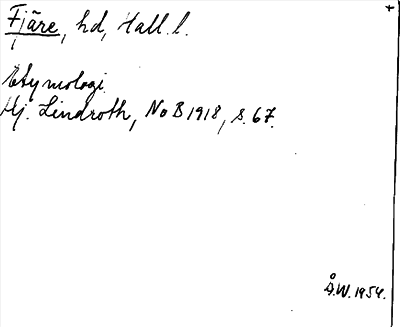 Fjäre, hd, Hall. l.
Etymologi.
Hj. Lindroth, NoB 1918, s. 67.
Å.W. 1954.